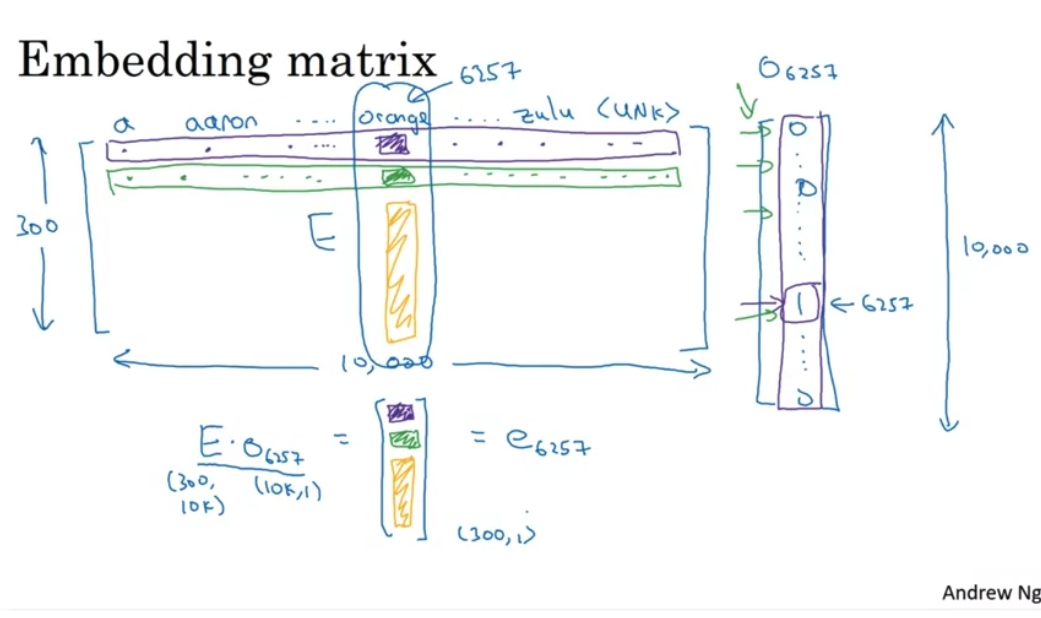 Embedding matrix
6257
O6257
a aaron ..... orange ..... zulu <UNK>
0
300
E
0
10,000
1 ← 6257
10,000
0
E · O6257 = [ ] = e6257
(300, 10K) (10K,1)
(300,1)
Andrew Ng